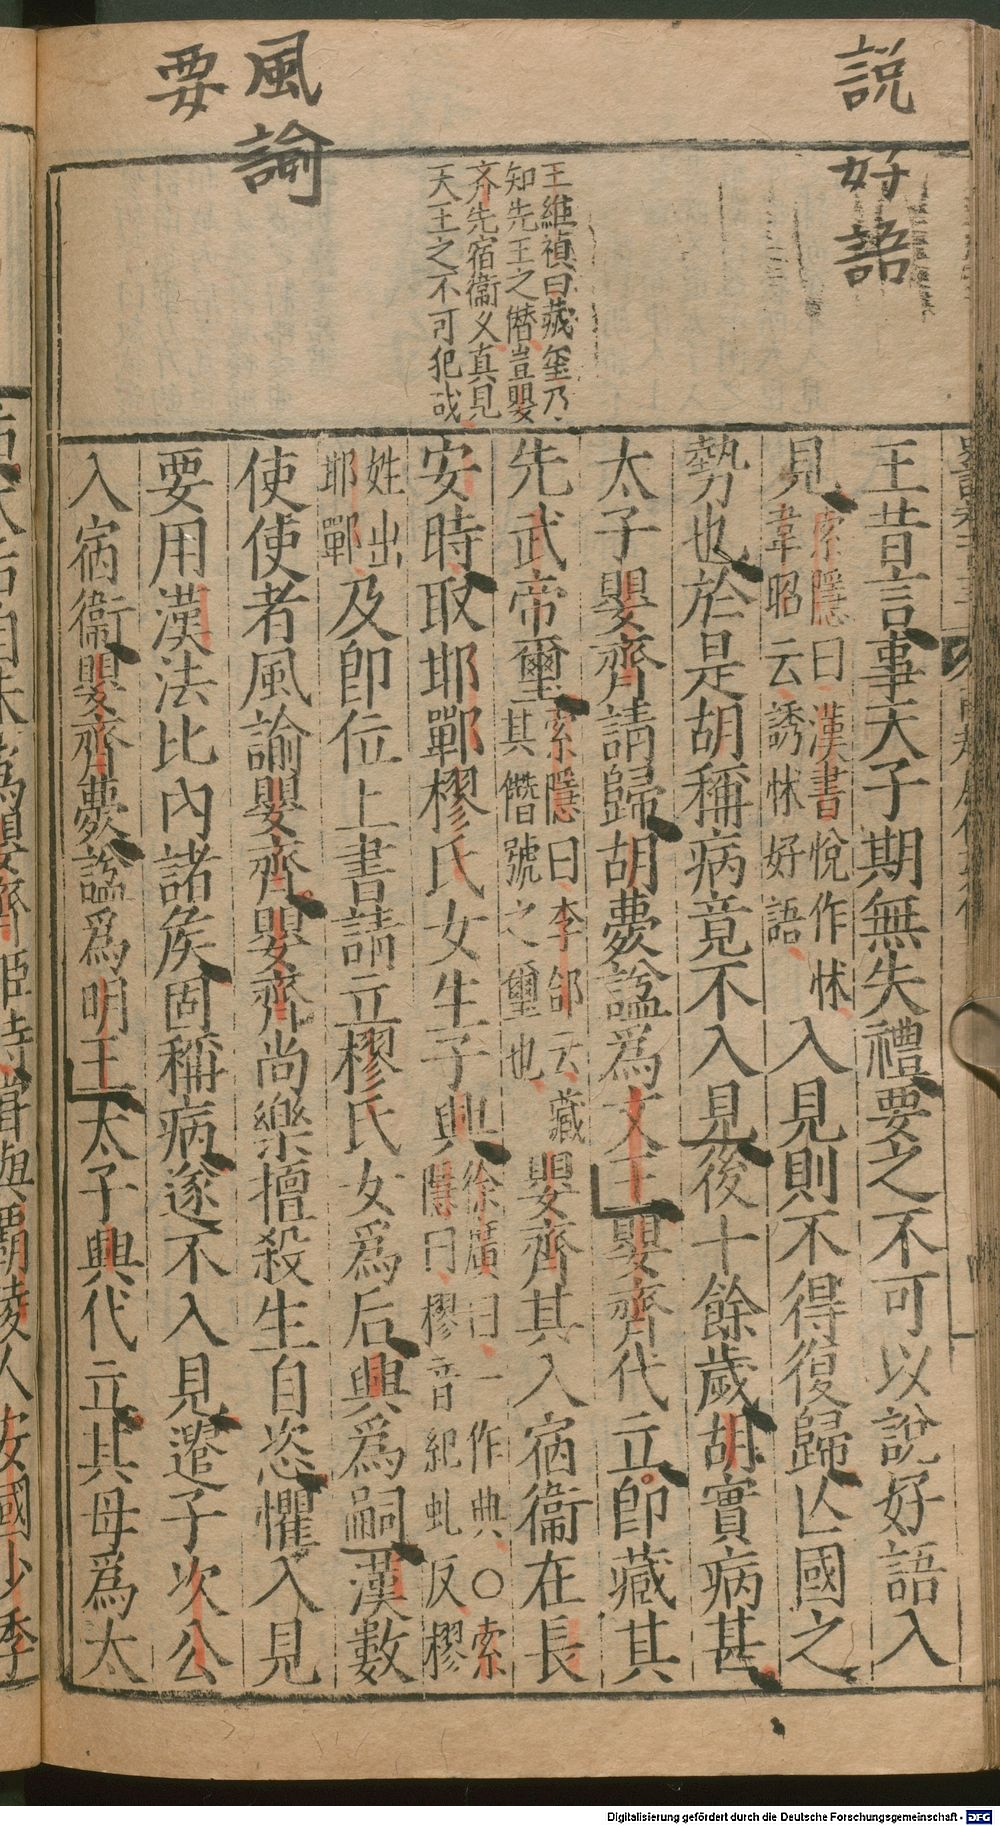 説
好語
風諭
要
王維禎曰藏璽乃
知先王之僣豈嬰
齐先宿衞义真見
天王之不可犯或
王昔言事天子期無失禮要之不可以說好語入
見索隱曰漢書悅作怵
韋昭云誘怵好語入見則不得復歸亾國之
勢也於是胡稱病竟不入見後十餘歲胡實病甚
太子嬰齊請歸胡薨諡爲文王嬰齊代立卽藏其
先武帝璽索隱曰李郃云藏
其僭號之璽也嬰齊其入宿衞在長
安時取邯鄲樛氏女生子興徐廣曰一作典○索
隱曰樛音紀虬反樛
姓出
邯鄲及卽位上書請立樛氏女爲后興爲嗣漢數
使使者風諭嬰齊嬰齊尚樂擅殺生自恣懼入見
要用漢法比內諸矦固稱病遂不入見遣子次公
入宿衞嬰齊薨諡爲明王太子興代立其母爲太
Digitalisierung gefördert durch die Deutsche Forschungsgemeinschaft - DFG